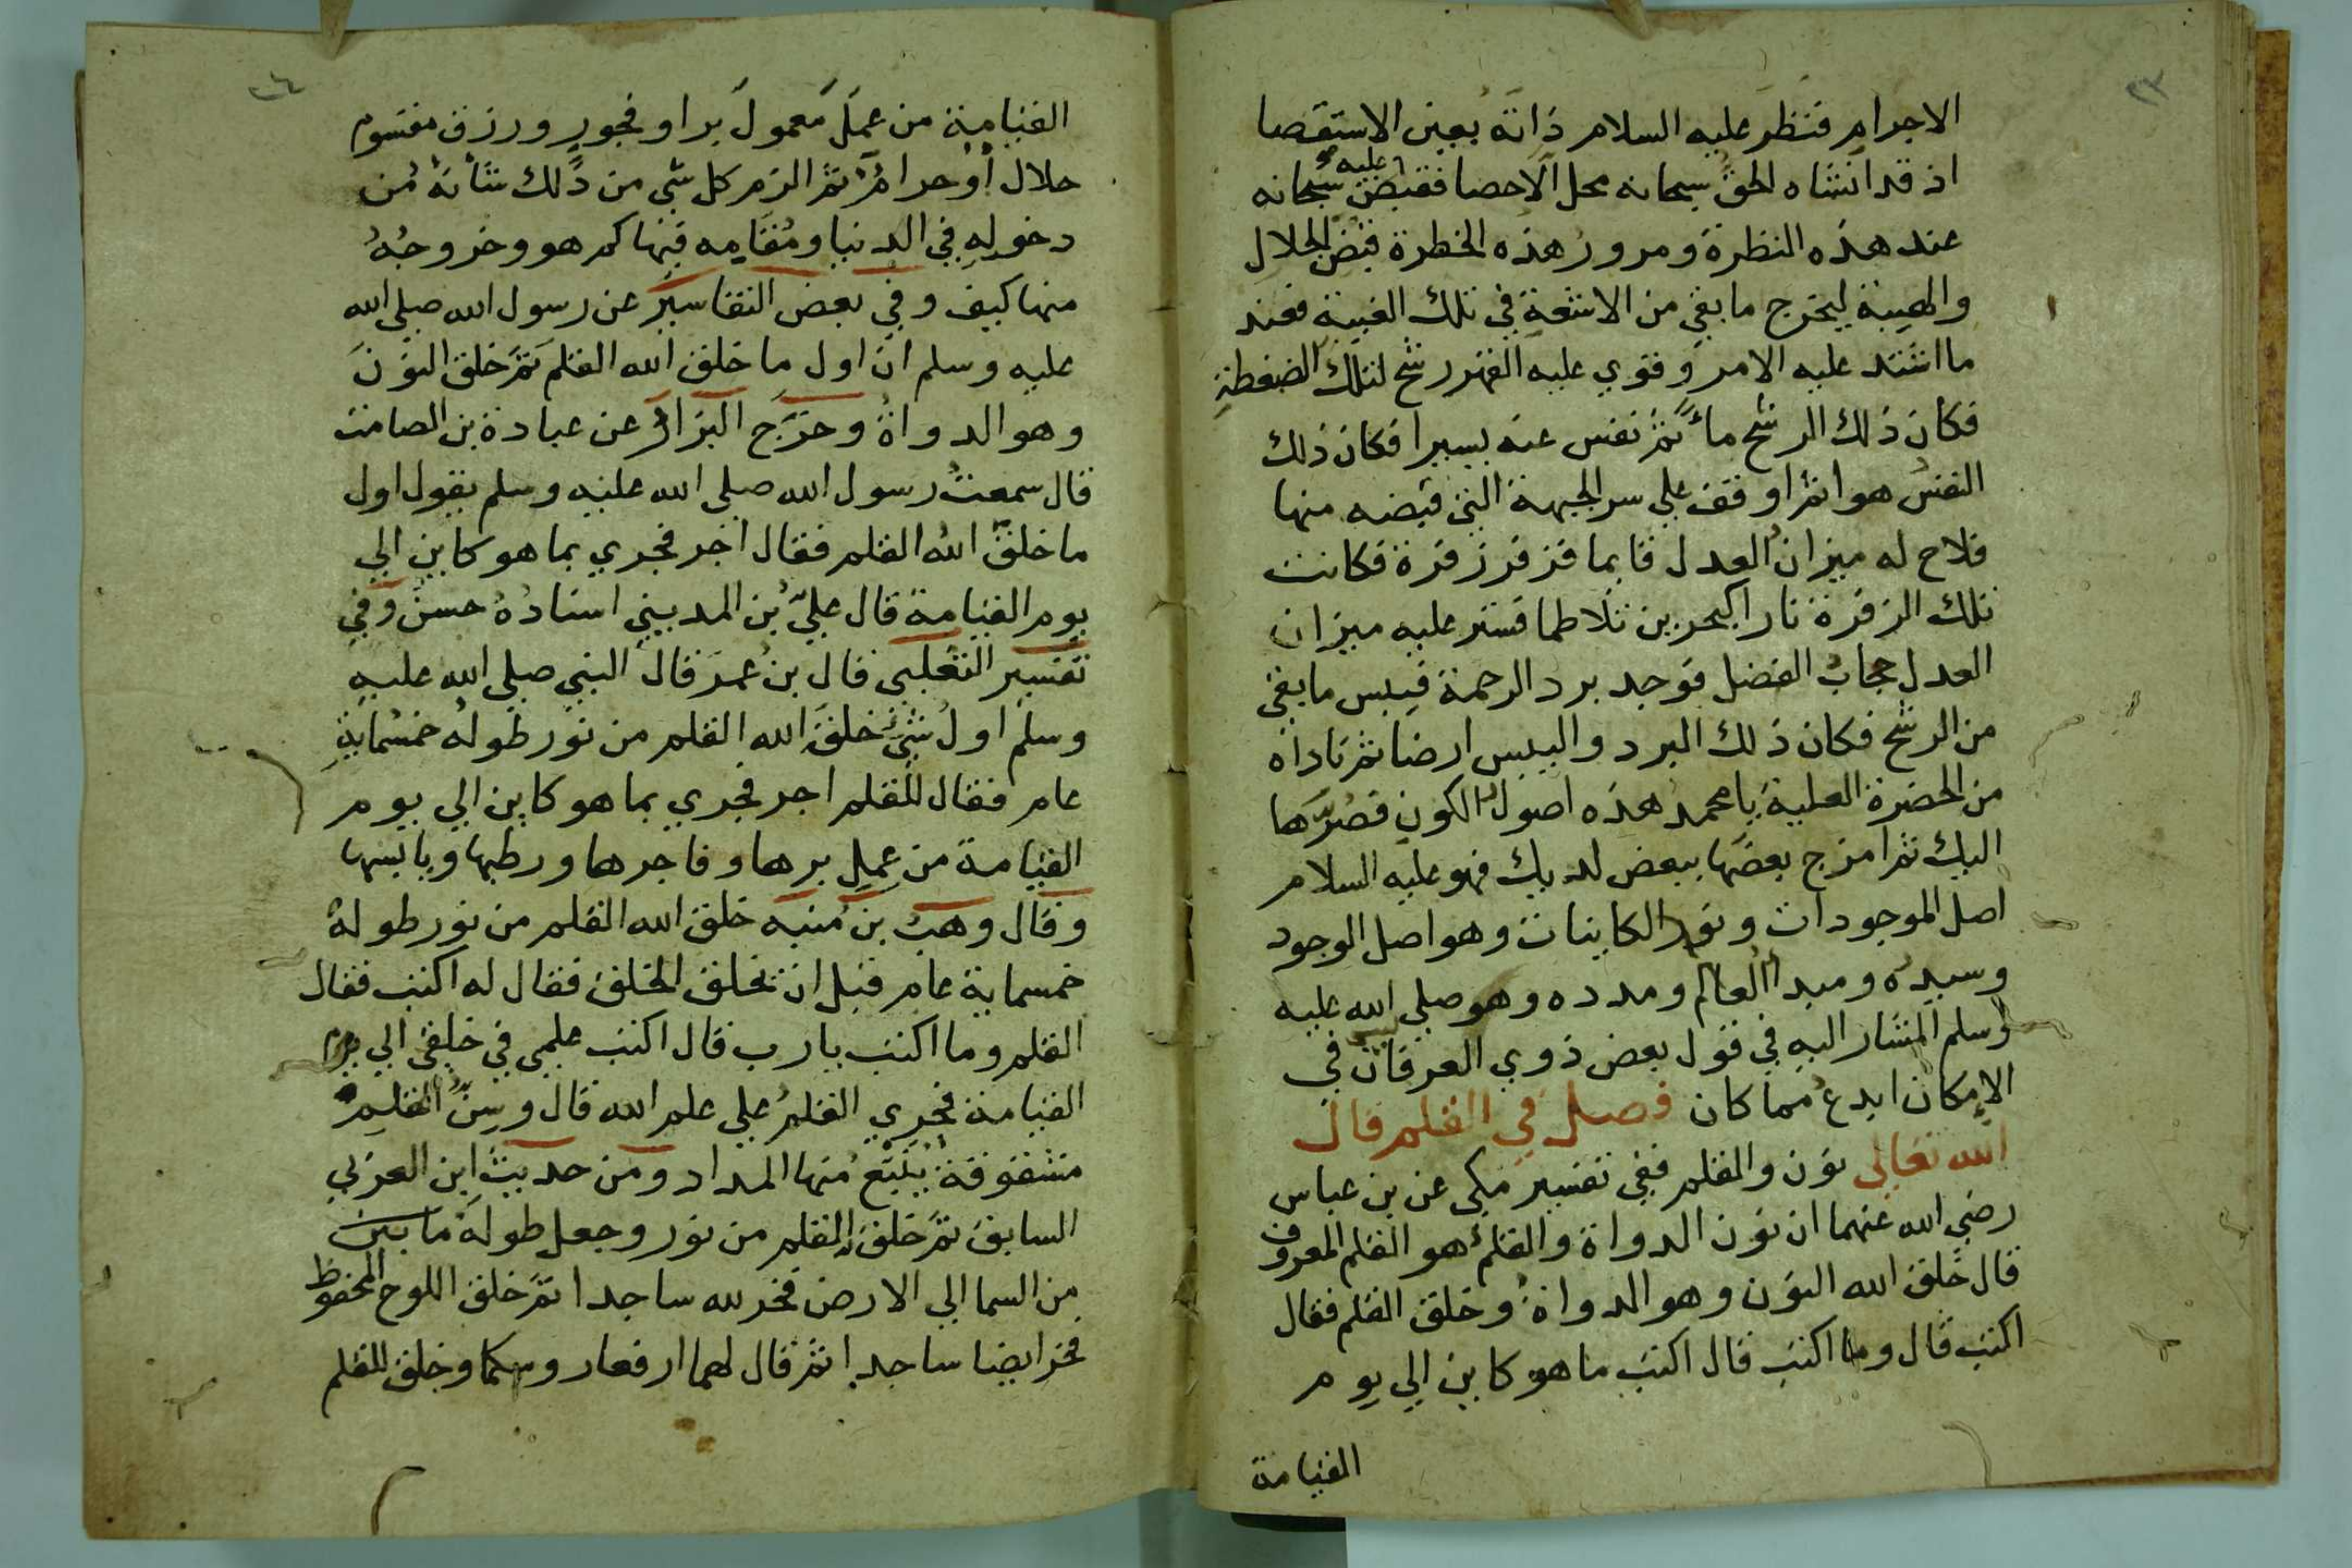 ٢٣
الاجرام فنظر عليه السلام ذاته بعين الاستقصا
اذ قد انشاه الحق سبحانه محل الاحصا فقبض عليه سبحانه
عند هذه النظرة ومرور هذه الخطرة قبض الجلال
والهيبة ليخرج ما بقي من الاشعة في تلك الغيبة فعند
ما اشتد عليه الامر وقوي عليه القهر رشح لتلك الضغطة
فكان ذلك الرشح ماً ثم نفس عنه يسيرا فكان ذلك
النفس هوا ثم اوقف علي سر الجبهة التي قبضه منها
فلاح له ميزان العدل قايما فزفر زفرة فكانت
تلك الزفرة نارا كبحرين تلاطما فستر عليه ميزان
العدل حجاب الفضل فوجد برد الرحمة فيبس ما بقي
من الرشح فكان ذلك البرد واليبس ارضا ثم ناداه
من الحضرة العلية يا محمد هذه اصول الكون فصرها
اليك ثم امزج بعضها ببعض لديك فهو عليه السلام
اصل الموجودات ونور الكاينات وهو اصل الوجود
وسيده ومبدا العالم ومدده وهو صلي الله عليه
وسلم المشار اليه في قول بعض ذوي العرفان ليس في
الامكان ابدع مما كان فصل في القلم قال
الله تعالي نون والقلم ففي تفسير مكي عن بن عباس
رضي الله عنهما ان نون الدواة والقلم هو القلم المعروف
قال خلق الله النون وهو الدواة وخلق القلم فقال
اكتب قال وما اكتب قال اكتب ما هو كاين الي يوم
القيامة
٢٤
القيامة من عمل معمول بر او فجور ورزق مقسوم
حلال او حرام ثم الزم كل شي من ذلك شانه من
دخوله في الدنيا ومقامه فيها كم هو وخروجه
منها كيف وفي بعض التفاسير عن رسول الله صلي الله
عليه وسلم ان اول ما خلق الله القلم ثم خلق النون
وهو الدواة وخرج البزار عن عبادة بن الصامت
قال سمعت رسول الله صلي الله عليه وسلم يقول اول
ما خلق الله القلم فقال اجر فجري بما هو كاين الي
يوم القيامة قال علي بن المديني اسناده حسن وفي
تفسير الثعلبي قال بن عمر قال النبي صلي الله عليه
وسلم اول شي خلق الله القلم من نور طوله خمسماية
عام فقال للقلم اجر فجري بما هو كاين الي يوم
القيامة من عمل برها وفاجرها ورطبها ويابسها
وقال وهب بن منبه خلق الله القلم من نور طوله
خمسماية عام قبل ان يخلق الخلق فقال له اكتب فقال
القلم وما اكتب يا رب قال اكتب علمي في خلقي الي يوم
القيامة فجري القلم علي علم الله قال وسن القلم
مشقوقة ينبع منها المداد ومن حديث ابن العربي
السابق ثم خلق القلم من نور وجعل طوله ما بين
من السما الي الارض فخر لله ساجدا ثم خلق اللوح المحفوظ
فخر ايضا ساجدا ثم قال لهما ارفعا روسكما وخلق للقلم